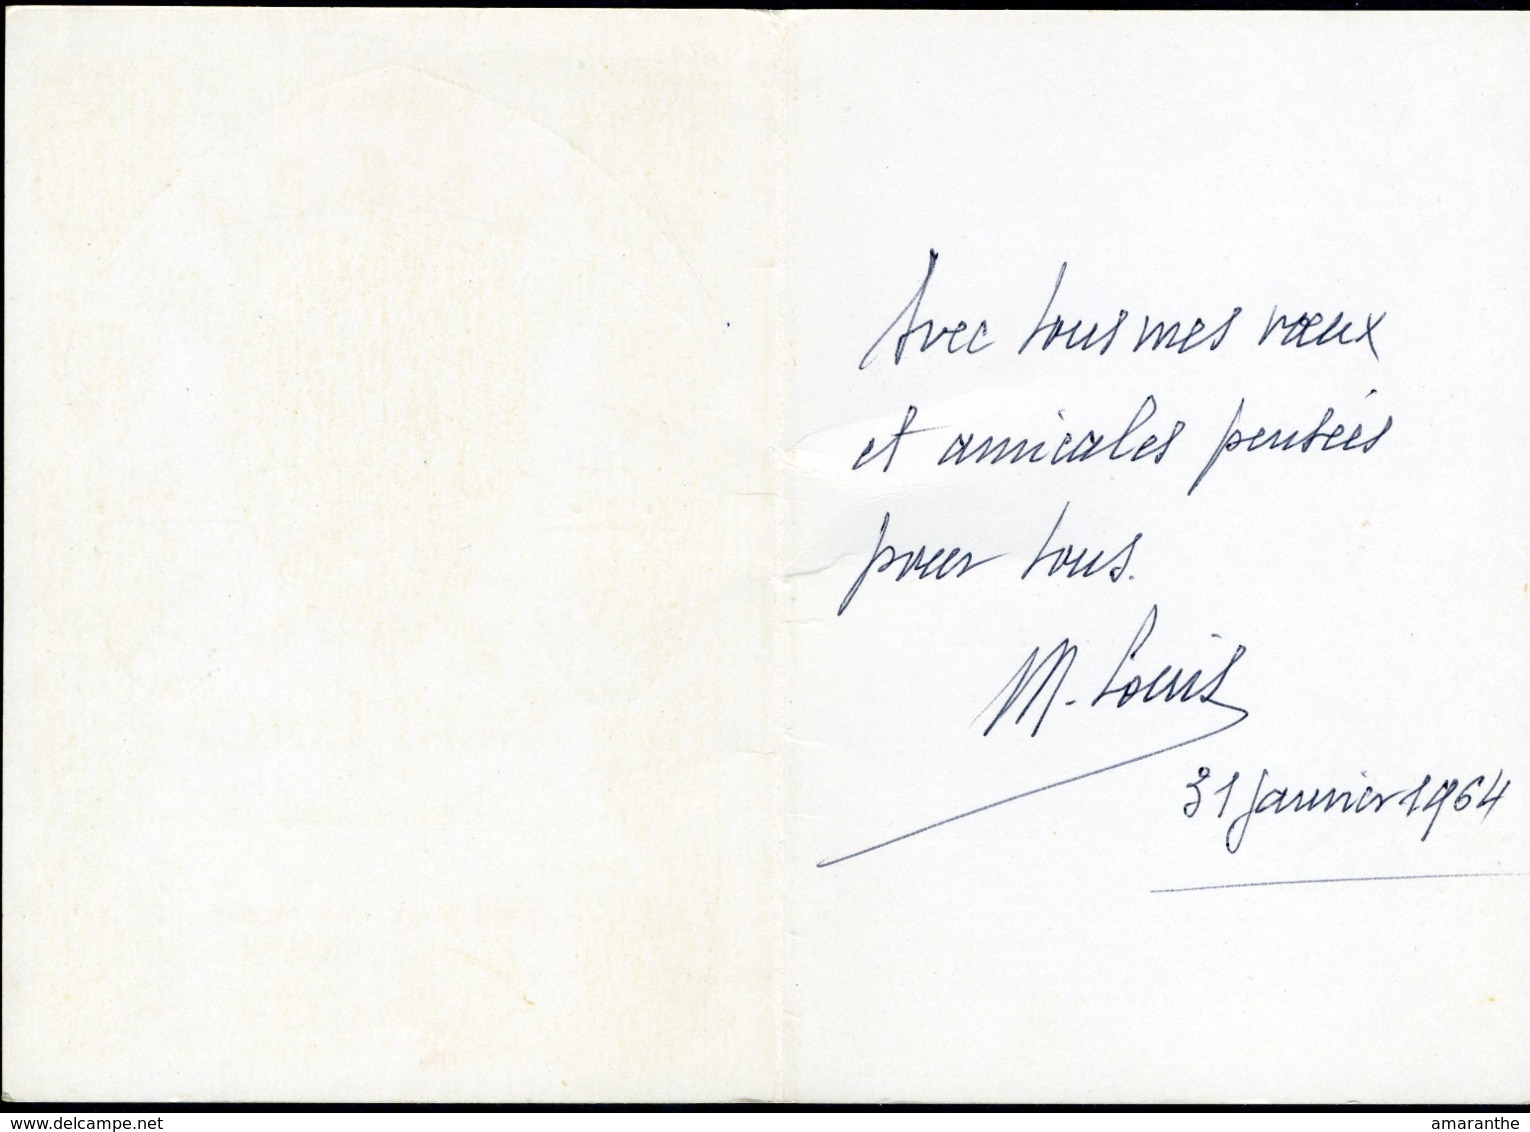 Avec tous mes vœux
et amicales pensées
pour tous.
M. Louis
31 janvier 1964
www.delcampe.net
amaranthe